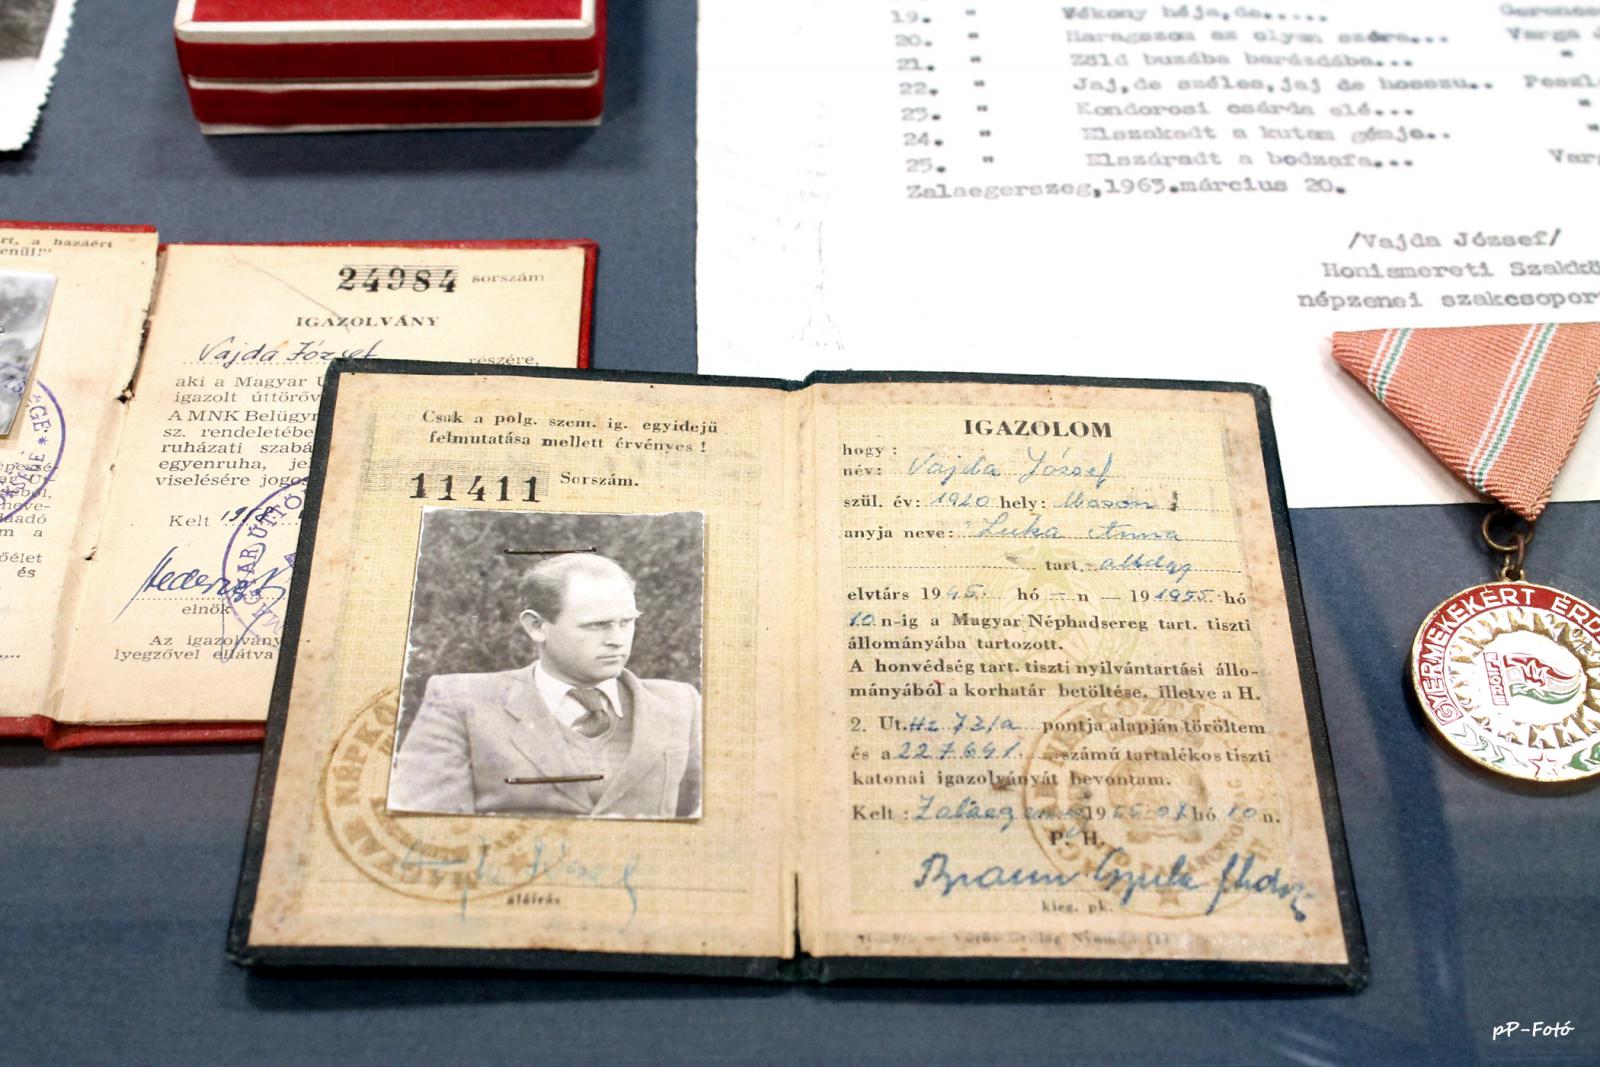 19. " Vékony héja, de.....
20. " Haragszom az olyan szóra... Varga
21. " Zöld buzába barázdába... "
22. " Jaj, de széles, jaj de hosszu..
23. " Kondorosi csárda elé... "
24. " Elszakadt a kutam gémje.. "
25. " Elszáradt a bodzafa...
Zalaegerszeg, 1963. március 20.
/Vajda József/
Honismereti Szakkö
népzenei szakcsopor
rt, a hazáért
enül!"
24984 sorszám
IGAZOLVÁNY
Vajda József részére,
aki a Magyar Ú
igazolt úttörőv
A MNK Belügy
sz. rendeletébe
ruházati szabá
egyenruha, je
viselésére jogos
Kelt
elnök
Az igazolvány
lyegzővel ellátva
Csak a polg. szem. ig. egyidejű
felmutatása mellett érvényes !
11411 Sorszám.
MAGYAR NÉPKÖ
aláírás
IGAZOLOM
hogy :
név: Vajda József
szül. év: 1920 hely: Moson
anyja neve: Luka Anna
tart.
elvtárs 1945. hó – n — 19 1955 hó
10 n-ig a Magyar Néphadsereg tart. tiszti
állományába tartozott.
A honvédség tart. tiszti nyilvántartási állo-
mányából a korhatár betöltése, illetve a H.
2. Ut. 73/a pontja alapján töröltem
és a 227641. számú tartalékos tiszti
katonai igazolványát bevontam.
Kelt : hó 10 n.
P. H.
Braun Gyula
kieg. pk.
GYERMEKEKÉRT ÉRD
pP-Fotó